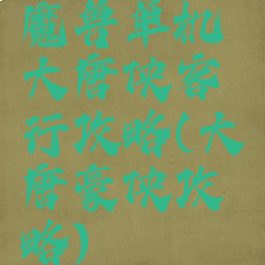 魔兽单机
大唐侠客
行攻略(大
唐豪侠攻
略)